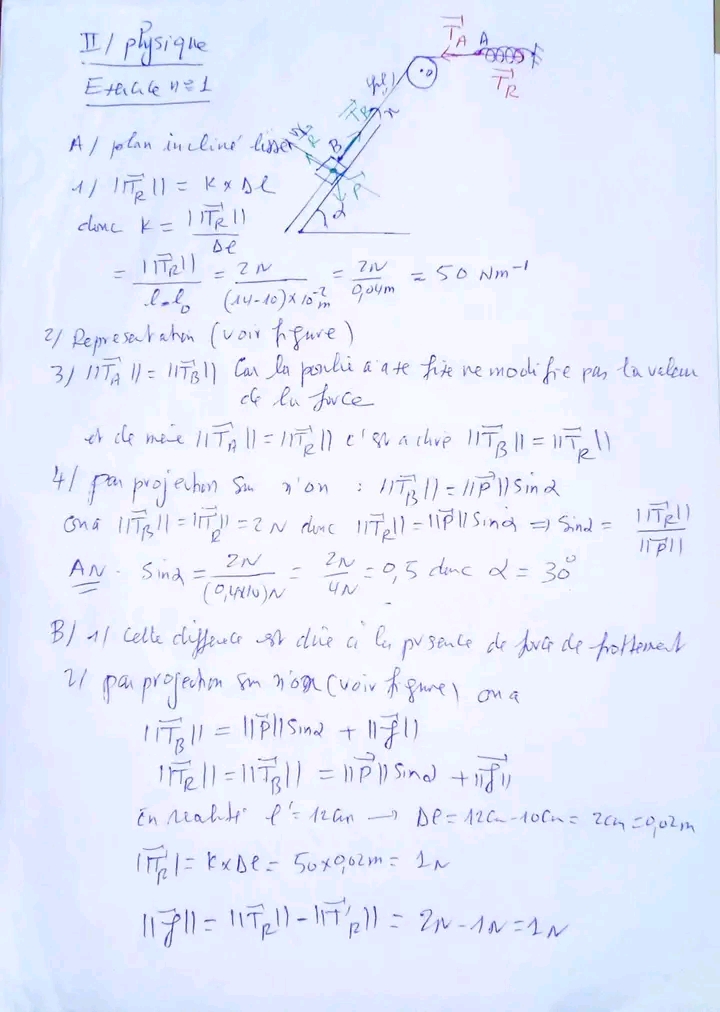 II / physique
Exercice n°1
T_A A
T_R
(fil)
T_B x
R B
P
α
A/ plan incliné lisse
1/ ||T_R|| = K × Δl
donc K = ||T_R|| / Δl
= ||T_R|| / l-l₀ = 2N / (14-10)×10⁻²m = 2N / 0,04m = 50 Nm⁻¹
2/ Representation (voir figure)
3/ ||T_A|| = ||T_B|| Car la poulie fixe ne modifie pas la valeur
de la force
et de même ||T_A|| = ||T_R|| c'est a dire ||T_B|| = ||T_R||
4/ par projection sur x'ox : ||T_B|| = ||P|| Sin α
on a ||T_B|| = ||T_R|| = 2N donc ||T_R|| = ||P|| Sin α ⇒ Sin α = ||T_R|| / ||P||
AN. Sin α = 2N / (0,4×10)N = 2N / 4N = 0,5 donc α = 30°
B/ 1/ Cette difference est dûe à la presence de force de frottement
2/ par projection sur x'ox (voir figure) on a
||T_B|| = ||P|| Sin α + ||f||
||T_R|| = ||T_B|| = ||P|| Sin α + ||f||
En realité l' = 12cm → Δl = 12cm - 10cm = 2cm = 0,02m
||T'_R|| = K × Δl = 50 × 0,02m = 1N
||f|| = ||T_R|| - ||T'_R|| = 2N - 1N = 1N